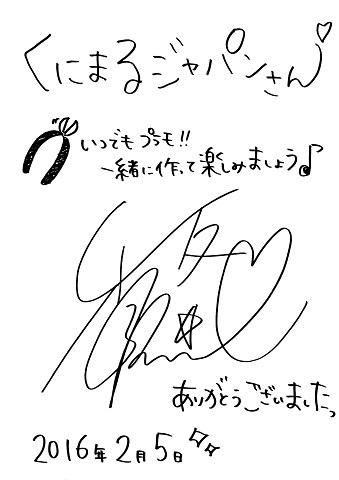 くにまるジャパンさん♡
いつでもプラモ!!
一緒に作って楽しみましょう♪
ありがとうございましたっ
2016年2月5日